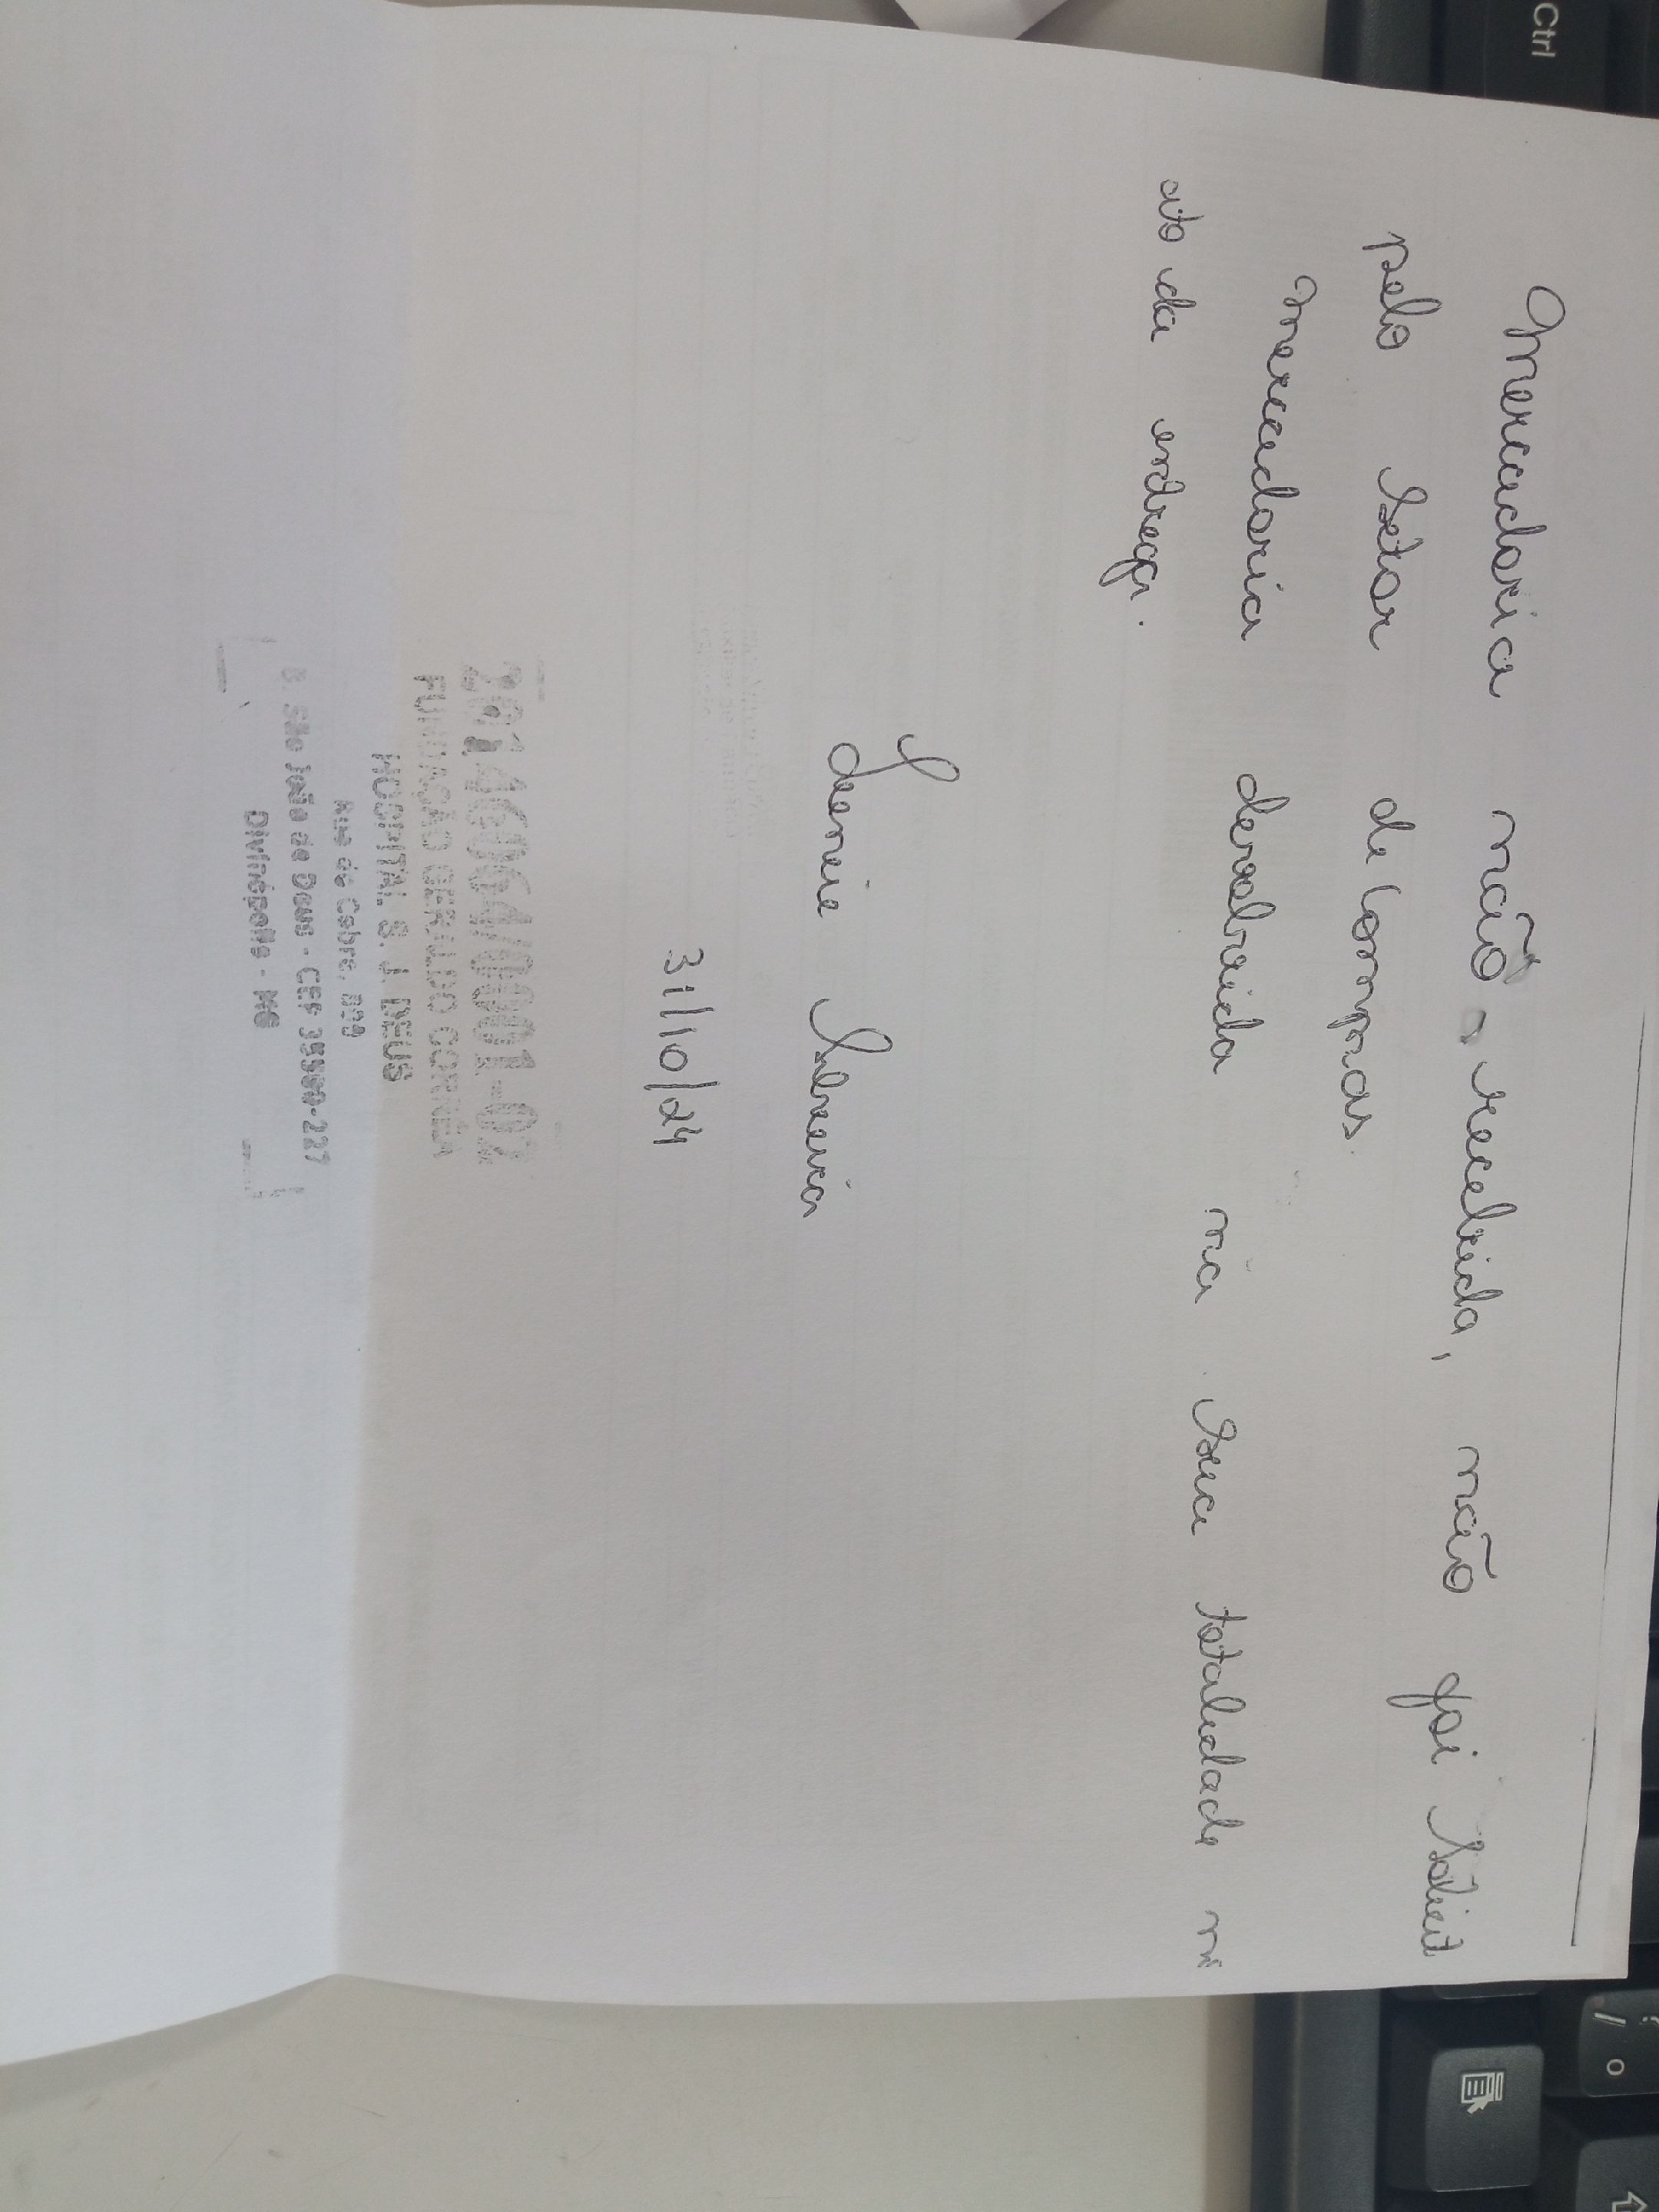 Mercadoria não recebida, não foi solicit
pelo setor de compras
Mercadoria devolvida na sua totalidade no
ato da entrega.
31/10/24
20146064/0001-02
FUNDAÇÃO GERALDO CORRÊA
HOSPITAL S. J. DEUS
Rua do Cobre, 800
B. São João de Deus - CEP 35500-227
Divinópolis - MG
Ctrl